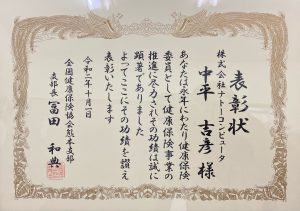 表彰状
株式会社ナトーコンピュータ
中平 吉彦 様
あなたは永年にわたり健康保険
委員として健康保険事業の
推進に尽力されその功績は誠に
顕著でありました
よってここにその功績を讃え
表彰いたします
令和二年十月一日
全国健康保険協会熊本支部
支部長 冨田 和典